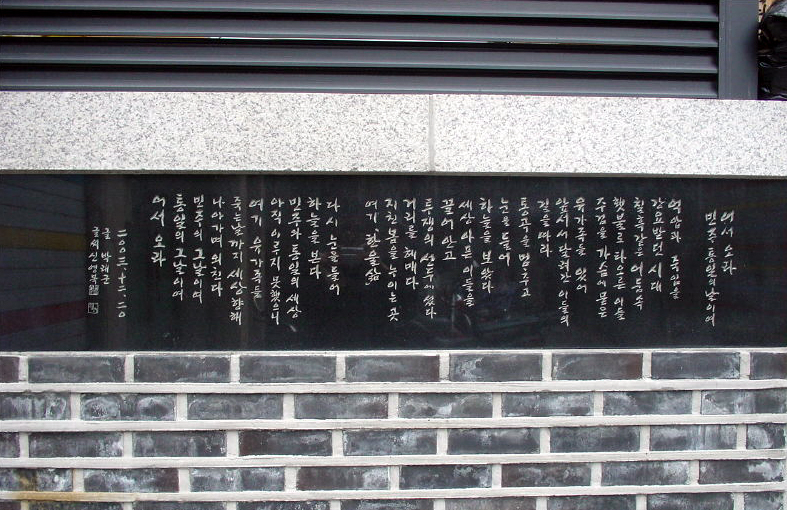 어서 오라
민주 통일의 날이여
억압과 죽임을
강요받던 시대
칠흑같은 어둠속
횃불로 타오른 이들
주검을 가슴에 묻은
유가족들 있어
앞서서 달려간 이들의
길을 따라
통곡을 멈추고
눈을 들어
하늘을 보았다
세상 아픈 이들을
끌어안고
투쟁의 선두에 섰다
거리를 헤매다
지친 몸을 누이는 곳
여기, 한울삶
다시 눈을 들어
하늘을 본다
민주와 통일의 세상
아직 이루지 못했으니
여기 유가족들
죽는날까지 세상 향해
나아가며 외친다
민주의 그날이여
통일의 그날이여
어서 오라
二〇〇三. 十二. 二〇
글 박래군
글씨 신영복